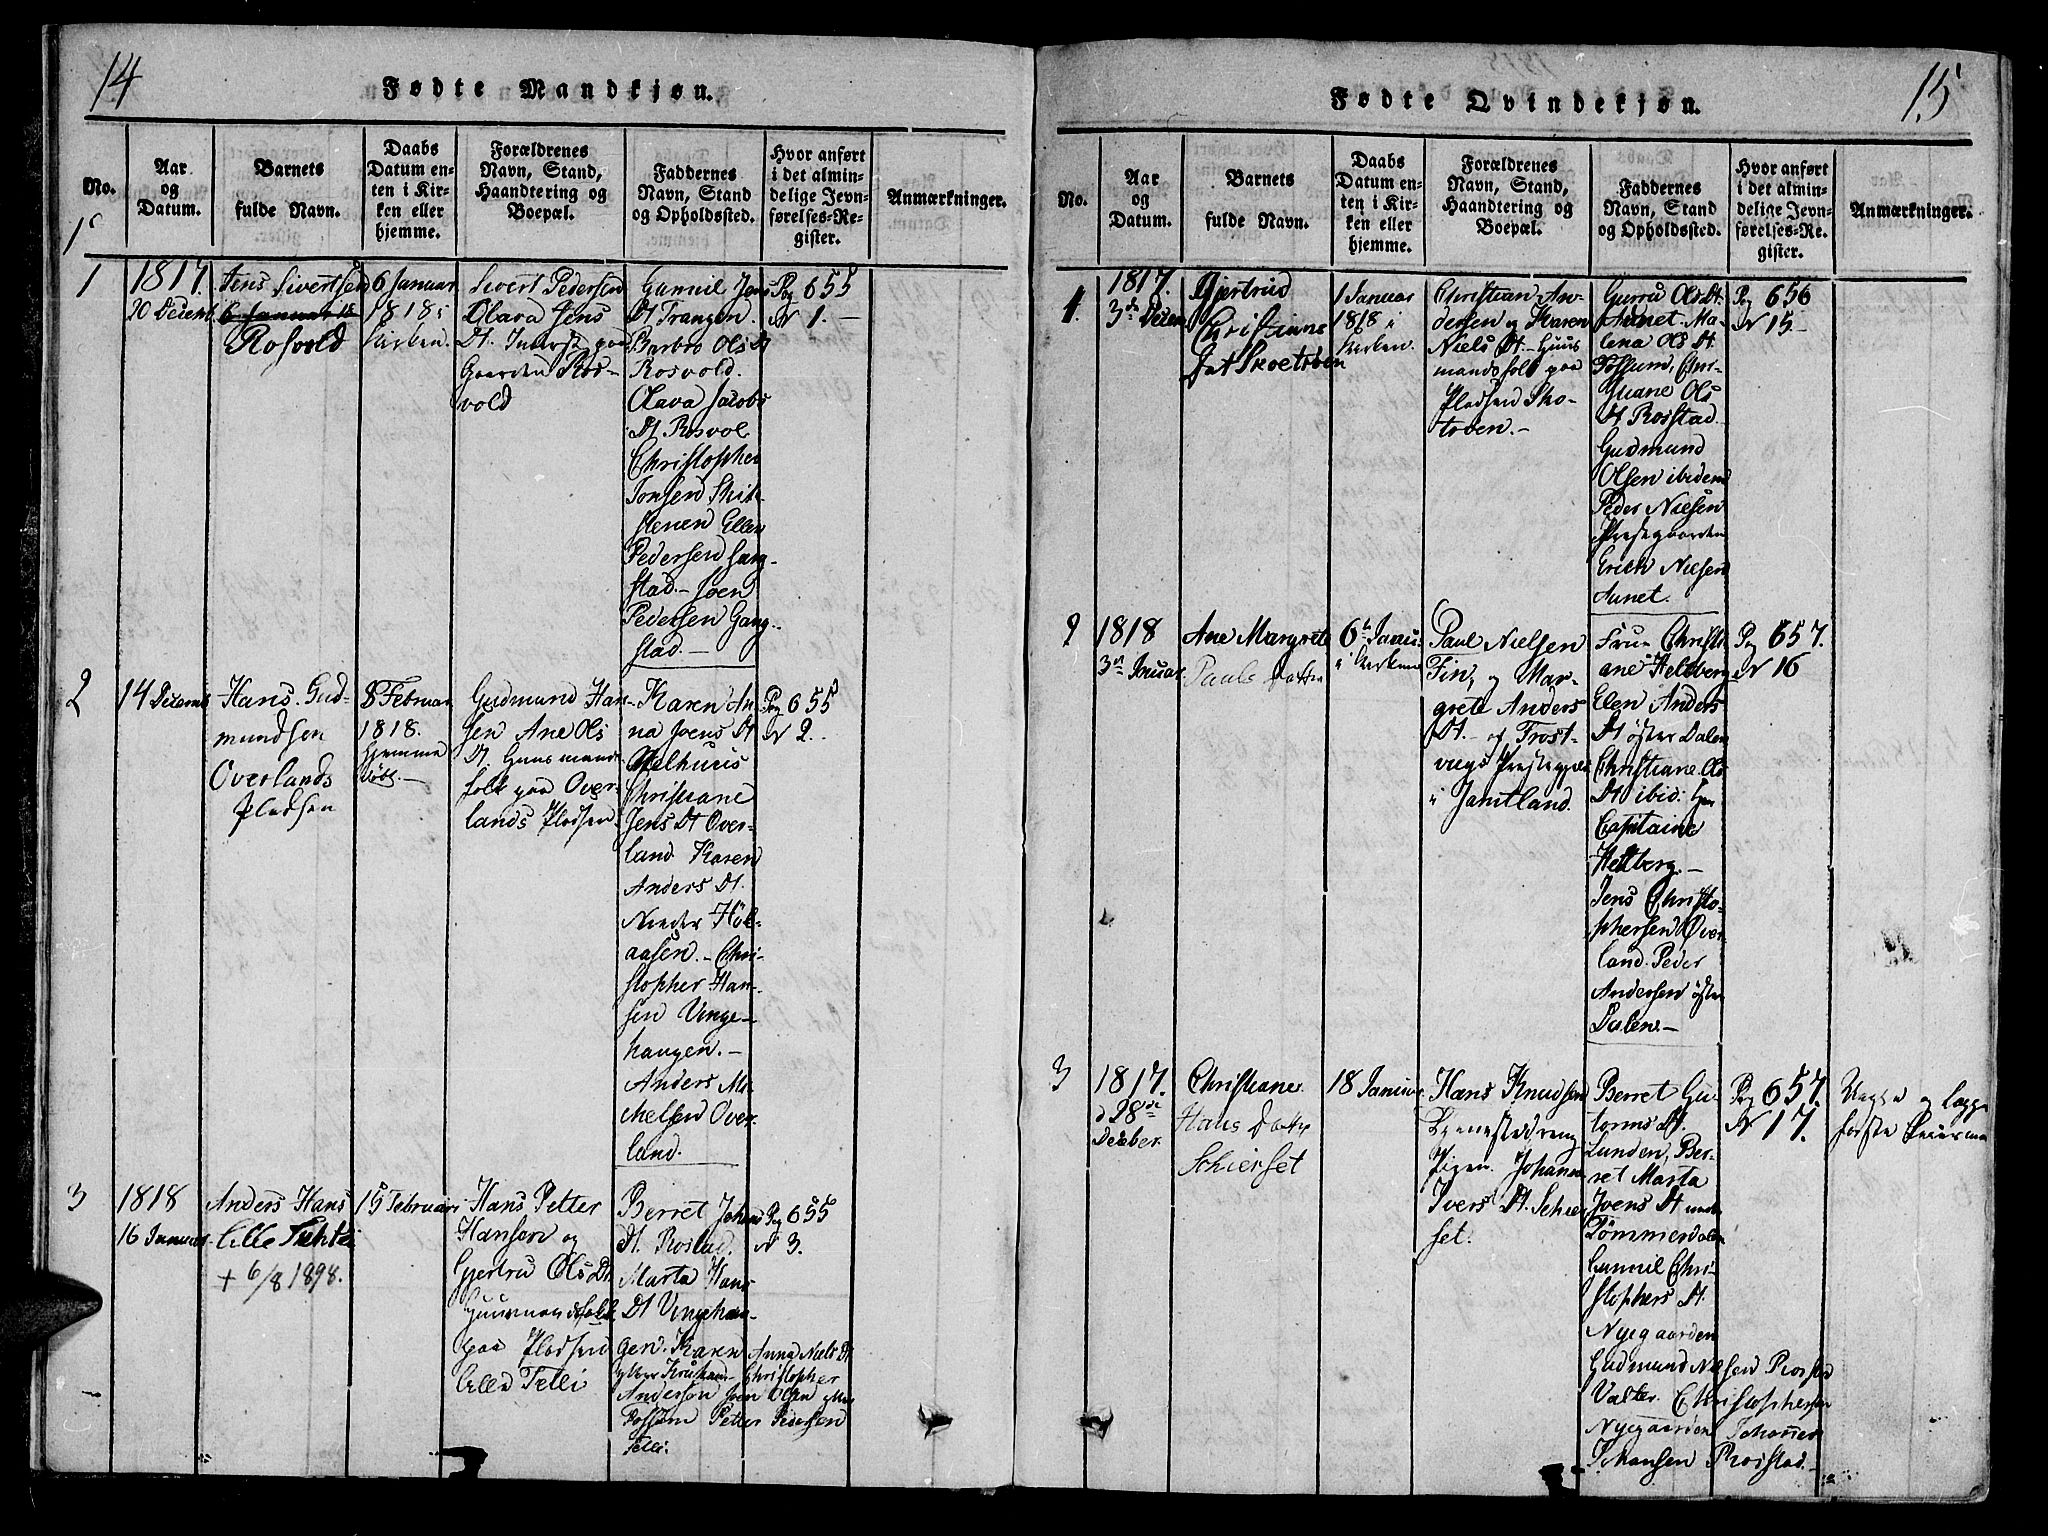 14
Fødte Mandkjøn.
No.
Aar
og
Datum.
Barnets
fulde Navn.
Daabs
Datum en-
ten i Kir-
ken eller
hjemme.
Forældrenes
Navn, Stand,
Haandtering og
Boepæl.
Faddernes
Navn, Stand
og Opholdssted.
Hvor anført
i det almin-
delige Jevn-
førelses-Re-
gister.
Anmærkninger.
1
1817.
20 Decemb.
Jens Sivertsen
6 Januar 18
Rosvold
6 Januar
1818 i
Kirken.
Sivert Pedersen
Olava Jens
Dt. Inderst paa
Gaarden Ros-
vold
Gunnil Jens
Dt Trangen.
Barbro Ols Dt
Rosvold.
Olava Jacobs
Dt Rosvol
Christopher
Jonsen
Ellen
Pedersen Gang-
stad. - Joen
Pedersen Gang-
stad. -
Pag 655
N 1. -
2
14 Decemb
Hans Gud-
mundsen
Overlands
Pladsen
8 Februar
1818.
hjemme
døbt. -
Gudmund Han-
sen Ane Ols
Dt. Huusmands
folk paa Over-
lands Pladsen
Karen An-
na Joens Dt
Melhuus
Christiane
Jens Dt Over-
land Karen
Anders Dt.
Neder Höl-
aasen. - Chri-
stopher Han-
sen Vinge-
haugen. -
Anders Mi-
chelsen Over-
land.
Pag 655
N 2.
3
1818
16 Januar
Anders Hans
Lille
+ 6/8 1898.
15 Februar
Hans Petter
Hansen og
Gjertrud Ols Dt.
Huusmandsfolk
paa Pladsen
Lille Telli
Berret Johns
Dt. Rostad.
Marta Hans
Dt Vingehau-
gen. Karen Anna Niels Dt
Christopher
Andersen Joen Olsen
Fossem Petter Pedersen
Telli.
Pag 655
N 3.
15
Fødte Qvindekjøn.
No.
Aar
og
Datum.
Barnets
fulde Navn.
Daabs
Datum en-
ten i Kir-
ken eller
hjemme.
Forældrenes
Navn, Stand,
Haandtering og
Boepæl.
Faddernes
Navn, Stand
og Opholdssted.
Hvor anført
i det almin-
delige Jevn-
førelses-Re-
gister.
Anmærkninger.
1.
1817.
3de Decem
Gjertrud
Christiane
1 Januar
1818 i
Kirken.
Christian An-
dersen og Karen
Niels Dt. - Huus
mandsfolk paa
Pladsen Sko-
toven. -
Gurru Ols Dt.
Aunet. Ma-
lena Ols Dt
Fossum, Chri-
stiane Ols
Dt Rosstad
Gudmund
Olsen ibidem
Peder Nielsen
Præstegaarden
Erich Nielsen
Aunet.
Pag 656
N 15 -
2
1818
3die Januar
Ane Margrete
Pauls Datter
6te Januar
i Kirken
Paul Nielsen
Fin, og Mar-
grete Anders
Dt. - af Frost-
vigs Præstegjeld
i Jamtland.
Frue Christi-
ane Heltberg
Elen Anders
Dt öster Dalen
Christiane Ols
Dt ibid: Herr
Capitaine
Heltberg. -
Jens Christo-
phersen Over-
land. Peder
Andersen öster
Dalen. -
Pag 657.
N 16
3
1817.
d 28de
December
Christiane
Hans Datter
Schierset
18 Januar
Hans Knudsen
Tjenestedreng
Pigen Johanna
Ivers Dt. Schier-
set.
Berret Gu-
torms Dt.
Lunden, Ber-
ret Marta
Joens Dt
Tømmerdalen
Gunnil Chri-
stophers Dt.
Nyegaarden
Gudmund Nielsen Rosstad
Christophersen
Nyegaarden
Johansen Rosstad. -
Pag 657.
N 17.
Uægte og begges
første Leiermaal